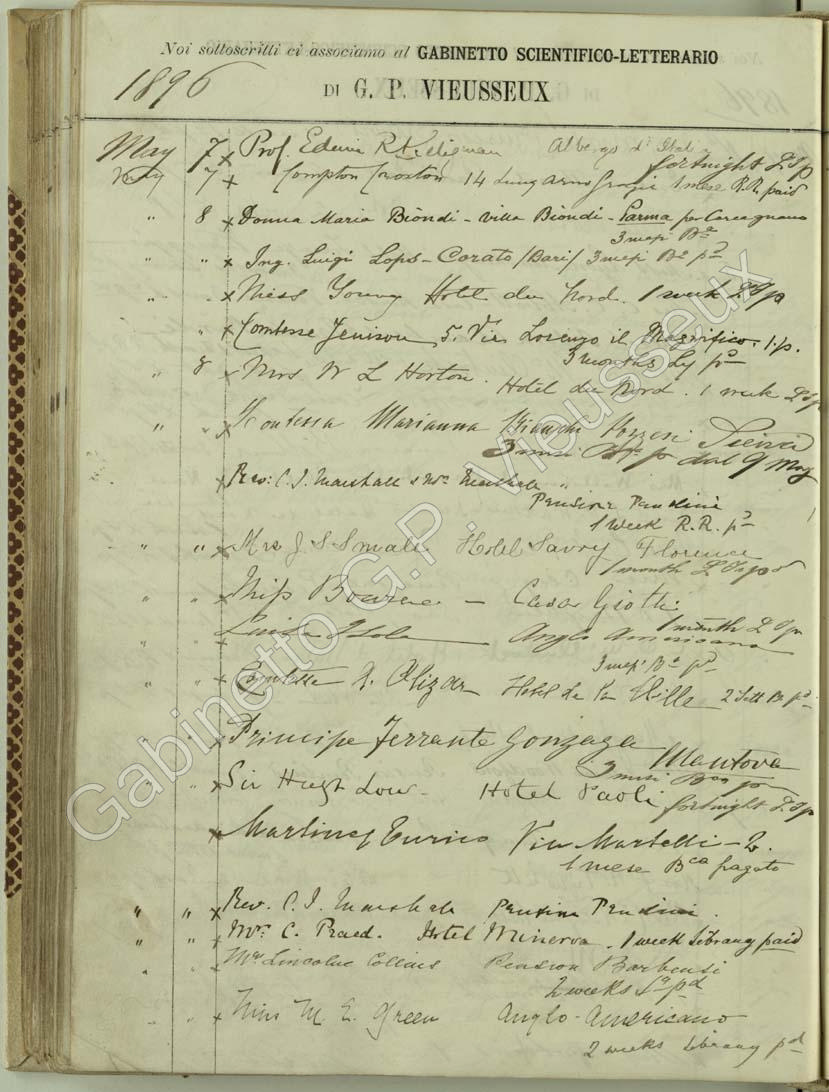 Noi sottoscritti ci associamo al GABINETTO SCIENTIFICO-LETTERARIO
1896
DI G. P. VIEUSSEUX
May 7 x Prof. Edwin R. Albergo d'Italia
fortnight L. p
May 7 x Compton 14 Lung'arno 1 mese R.R. paid
" 8 x Donna Maria Biondi - villa Biondi - Parma per
3 mesi Ba
" " x Ing. Luigi Lops - Corato (Bari) 3 mesi Ba pd
" " x Miss Young Hotel du Nord. 1 week L p
" x Comtesse Jenison 5. Via Lorenzo il Magnifico. 1. p.
3 months Ly pd
" 8 x Mrs W L Horton. Hotel du Nord. 1 week L p
" " x Contessa Marianna Bianchi Siena
3 mesi p dal 9 May
x Rev: C. J. Marshall & Mrs Marshall "
Pensione Pendini
1 Week R.R. pd
" " x Mrs J. S. Small Hotel Savoy Florence
1 month L pd
" " x Miss Bourne - Casa Giotti
1 month L p
" " x Luisa Anglo Americana
3 mesi Ba pd
" " x Comtesse A. Hotel de la Ville 2 Sett Ba pd
" " x Principe Ferrante Gonzaga Mantova
3 mesi Bca p
" x Sir Hugh Low - Hotel Paoli fortnight L p
x Martinez Enrico Via Martelli - 2.
1 mese Bca pagato
" " x Rev. C. J. Marshall Pension Pendini.
" " x Mrs. C. Praed. Hotel Minerva. 1 week library paid
" " x Mrs Lincoln Collins Pension Barbensi
2 weeks Ly pd
" " x Miss M. E. Green Anglo-Americano
2 weeks library pd
Gabinetto G.P. Vieusseux